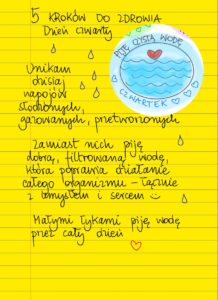 5 KROKÓW DO ZDROWIA
Dzień czwarty
PIJĘ CZYSTĄ WODĘ
CZWARTEK
Unikam
dzisiaj
napojów
słodzonych,
gazowanych, przetworzonych
Zamiast nich piję
dobrą, filtrowaną wodę,
która poprawia działanie
całego organizmu - łącznie
z umysłem i sercem
Małymi łykami piję wodę
przez cały dzień